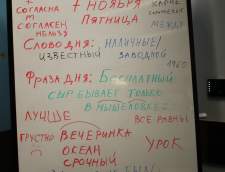 СОГЛАСНА 7 НОЯБРЯ
М
СОГЛАСЕН ПЯТНИЦА
НЕЛЬЗЯ МЕЖДУ
СЛОВО ДНЯ: НАЛИЧНЫЕ/
ИЗВЕСТНЫЙ ЗАВОДНОЙ
ФРАЗА ДНЯ: БЕСПЛАТНЫЙ
СЫР БЫВАЕТ ТОЛЬКО
В МЫШЕЛОВКЕ.
ЛУЧШЕ ВСЕ РАВНЫ
ГРУСТНО ВЕЧЕРИНКА
ОСЕЛ УРОК
СРОЧНЫЙ